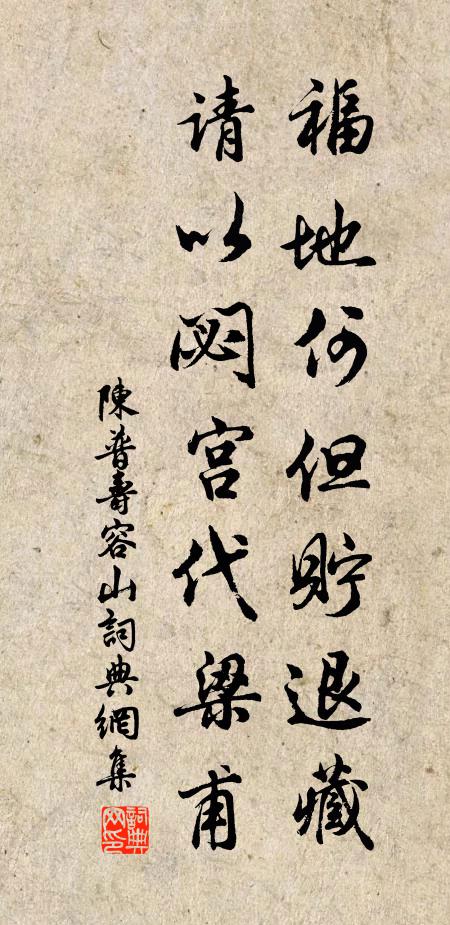 福地何但貯退藏
请以閟宫代梁甫
陳普壽容山詞典網集
詞典网印